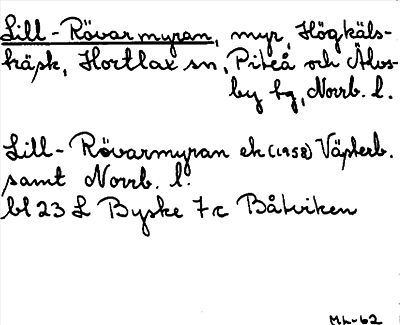 Lill-Rövarmyran, myr, Högkäls-
träsk, Hortlax sn, Piteå och Älvs-
by tg, Norrb. l.
Lill-Rövarmyran ek (1958) Västerb.
samt Norrb. l.
bl 23 L Byske 7 c Båtviken
Mh-62